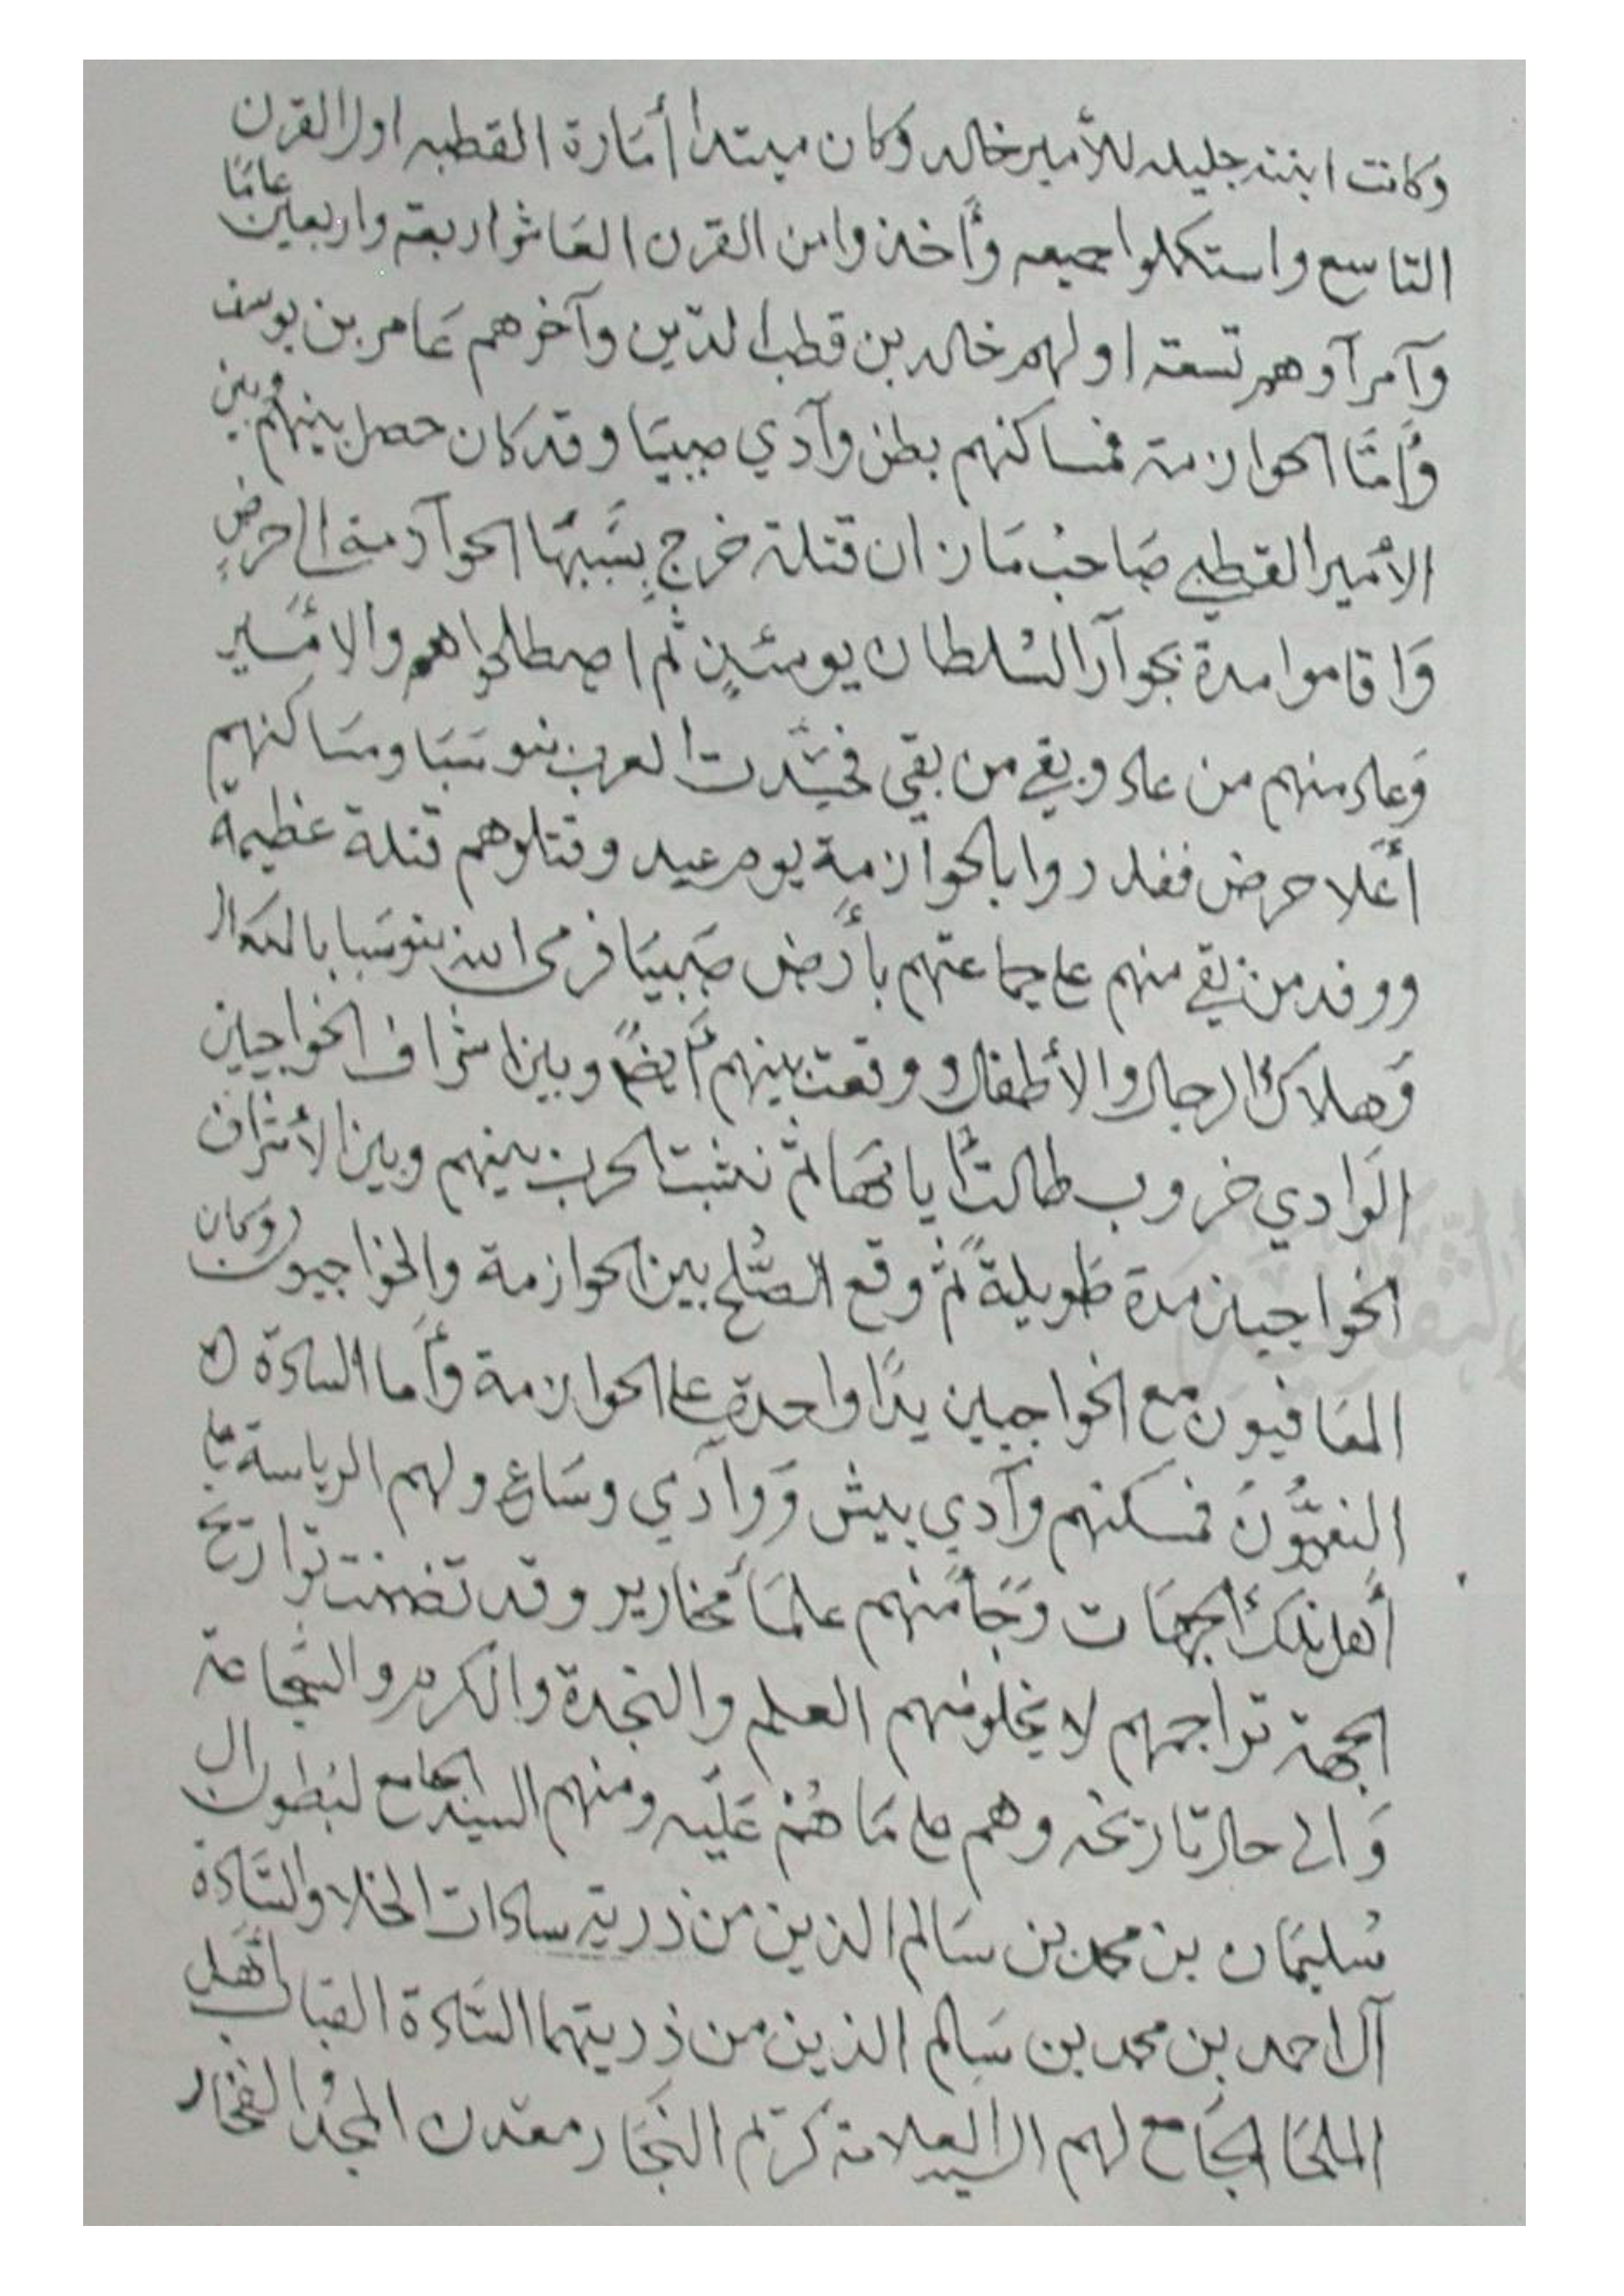 وكانت ابنته جليله للأمير خالد وكان مبتدا أمَارة القطبه اول القرن
التاسع واستكملوا جميعه وأخذوا من القرن العَاشر اربعة واربعين عامًا
وآمرآوهم تسعة اولهم خالد بن قطب الدّين وآخرهم عَامر بن يوسف
وأمّا الحوازمة فمساكنهم بطن وآدي صبيَا وقد كان حصل بينهم وبين
الأمير القطبي صَاحب مَازان قتلة خرج بسَببهَا الحوآزمة الى حرض
وَاقاموا مدة بجوآر السُلطان يومئذٍ ثم اصطلحوا هم والامَير
وَعاد منهم من عاد وبقي من بقي العرب بنو شبَا ومسَاكنهم
أعَلا حرض فغدروا بالحوآزمة يوم عيد وقتلوهم قتلة عظيمة
ووفد من بقي منهم على جماعتهم بأرض صَبيَا فرمى الله بنو شبا بالنكال
وَهلاك الرجال والأطفال ووقعت بينهم أيضًا وبين اشراف الخواجيين
الوَادي حروب طالت ايامهَا ثم نشبت الحرب بينهم وبين الأشراف
الخواجيين مدة طَويلةً ثم وقع الصُّلح بين الحوازمة والخواجيون وكان
المعَافيون مع الخواجيين يدًا واحدة على الحوازمة وأما السادة ال
النعميُّونَ فمسكنهم وآدي بيش وَوآدي وسَاع ولهم الرياسة على
أهل تلك الجهَات وَجَأمنهم علمَأ نحارير وقد تضمنت تواريخ
الجهة تراجمهم لا يخلو منهم العلم والنجدة والكرم والشجاعة
وَالى حال تاريخه وهم على مَا هُمْ عَليه ومنهم السيد الجامع لبُطون ال
سُليمَان بن محمد بن سَالم الذين من ذرية سادات المخلا والسَادة
آل احمد بن محمد بن سَالم الذين من ذريتهما السَادة القبَاب أهَل
الملحَا الجَامع لهم السيد العلامة كرَيم النجَار معَدن المجدُ والفخار